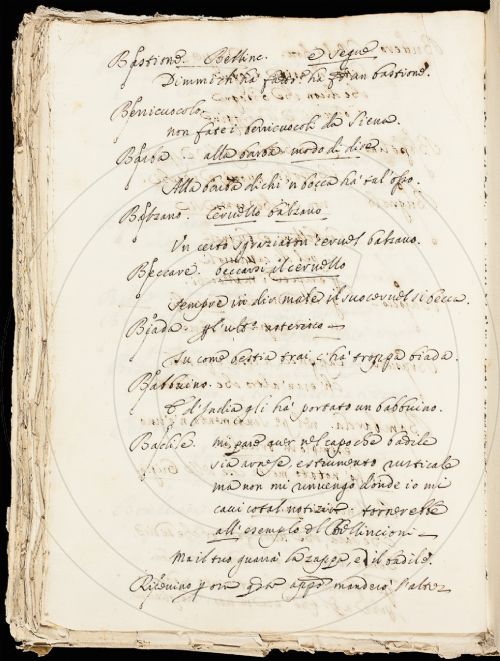 Bastione. Bellinc. e segue
Dimmi chi ha fatto ha far un bastione.
Berricuocolo.
non fate i berricuocoli da Siena.
Barba alla barba modo di dire
Alla barba di chi 'n bocca ha 'l osso.
Balzano. Cervello balzano
Un certo sgraziaton cervel balzano.
Beccare. beccarsi il cervello
Sempre in dir male il suo cervel si becca.
Biada
Tu come bestia trai, c'ha troppa biada.
Babbuino.
E d'India gli ha portato un babbuino.
Badile. mi pare aver nel capo che badile
sia arnese, e strumento rusticale
ma non mi rinvengo donde io mi
cavi cotal notizia. tornerebbe
all'esempio del Bellincioni
Ma il tuo guarìa la zappa, e il badile.
Ricevino p ora qste appo manderò l'altre